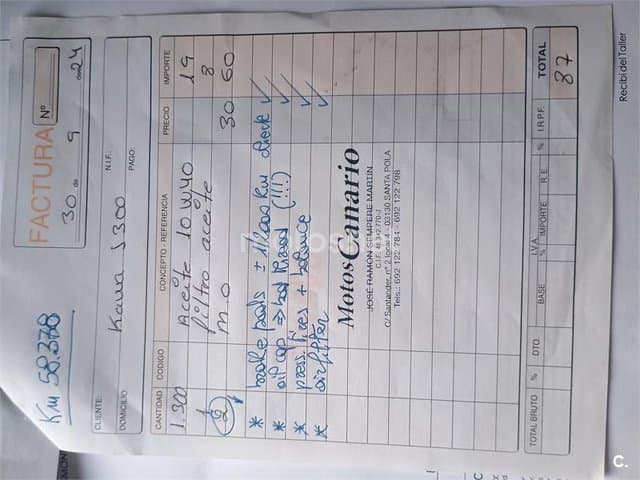 Km 58.378
FACTURA Nº
30 de 9 de 24
CLIENTE: Kawa J300
N.I.F.:
DOMICILIO
PAGO:
CANTIDAD CÓDIGO CONCEPTO - REFERENCIA PRECIO IMPORTE
1.300 Aceite 10W40 19
1 filtro aceite 8
2 M.O 30 60
* brake pads ± 1/2 cas km check ✓
* oil cap => bad thread (!!!!) ✓
* press. tires + balance ✓
* airfilter ✓
MotosCanario
JOSÉ RAMÓN SEMPERE MARTÍN
C/ Santander, nº 2 local 4 - 03130 SANTA POLA
Tels.: 692 122 784 - 692 122 798
TOTAL BRUTO % DTO. BASE I.V.A. % IMPORTE R.E. % I.R.P.F. TOTAL
87
Recibí del Taller
motos.net
C.